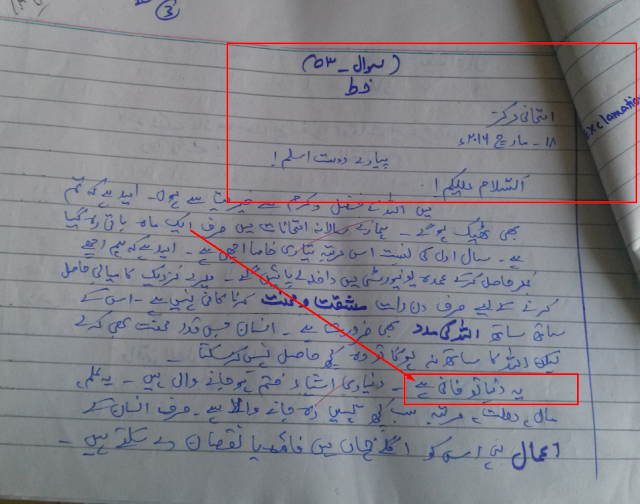 (سوال ـ ۵۳)
خط
امتحانی مرکز
۱۸ ـ مارچ ۲۰۱۶ء
پیارے دوست اسلم!
السّلام علیکم!
میں اللہ کے فضل و کرم سے خیریت سے ہوں۔ امید ہے کہ تم
بھی ٹھیک ہوگے۔ ہمارے سالانہ امتحانات میں صرف ایک ماہ باقی رہ گیا
ہے۔ سال اول کی نسبت اس مرتبہ تیاری خاصا اچھی ہے۔ امید ہے کہ ہم اچھے
نمبر حاصل کرکے عمدہ یونیورسٹی میں داخلہ لے پائیں گے۔ میرے نزدیک کامیابی حاصل
کرنے کے لیے صرف دن رات مشقت و محنت کرنا کافی نہیں ہے۔ اس کے
ساتھ ساتھ اللہ کی مدد بھی ضروری ہے۔ انسان جس قدر محنت بھی کرلے
لیکن اللہ کا ساتھ نہ ہوگا تو وہ کچھ حاصل نہیں کرسکتا۔
یہ دنیا تو فانی ہے۔ دنیاوی اشیاء ختم ہو جانے والی ہیں۔ یہ علم،
مال، دولت، مرتبہ سب کچھ یہیں رہ جانے والا ہے۔ صرف انسان کے
اعمال ہی اس کو اگلے جہاں میں فائدہ یا نقصان دے سکتے ہیں۔
exclamation